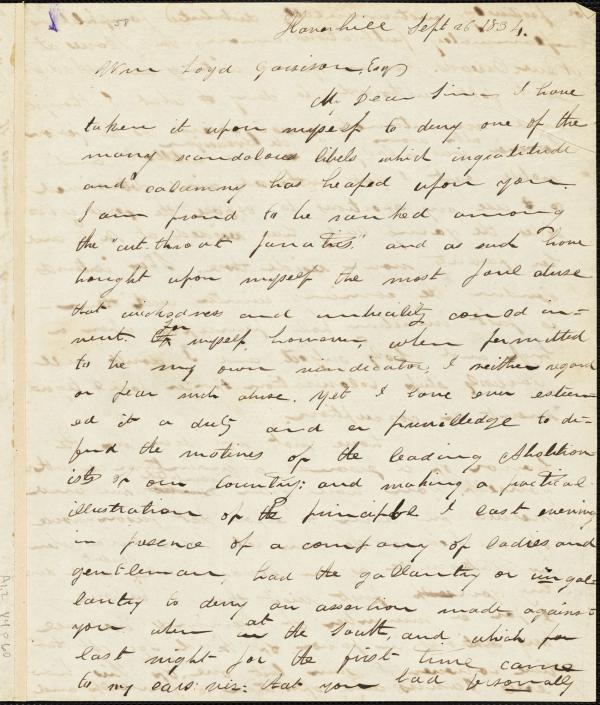 58
Haverhill Sept 26 1834.
Wm Loyd Garrison, Esq
My Dear Sir— I have
taken it upon myself to deny one of the
many scandalous libels which ingratitude
and calumny has heaped upon you.
I am proud to be ranked among
the "cut-throat fanatics" and as such have
bought upon myself the most foul abuse
that wickedness and imbecility could in-
vent for myself, however, when permitted
to be my own vindicator, I neither regard
or fear such abuse. Yet I have ever esteem
ed it a duty and a privilledge to de-
fend the motives of the leading Abolition
ists of our country; and making a practical
illustration of the principle I last evening
in presence of a company of ladies and
gentleman, had the gallantry or ungal-
lantry to deny an assertion made against
you when at the South, and which for
last night for the first time came
to my ears: viz: that you had personally